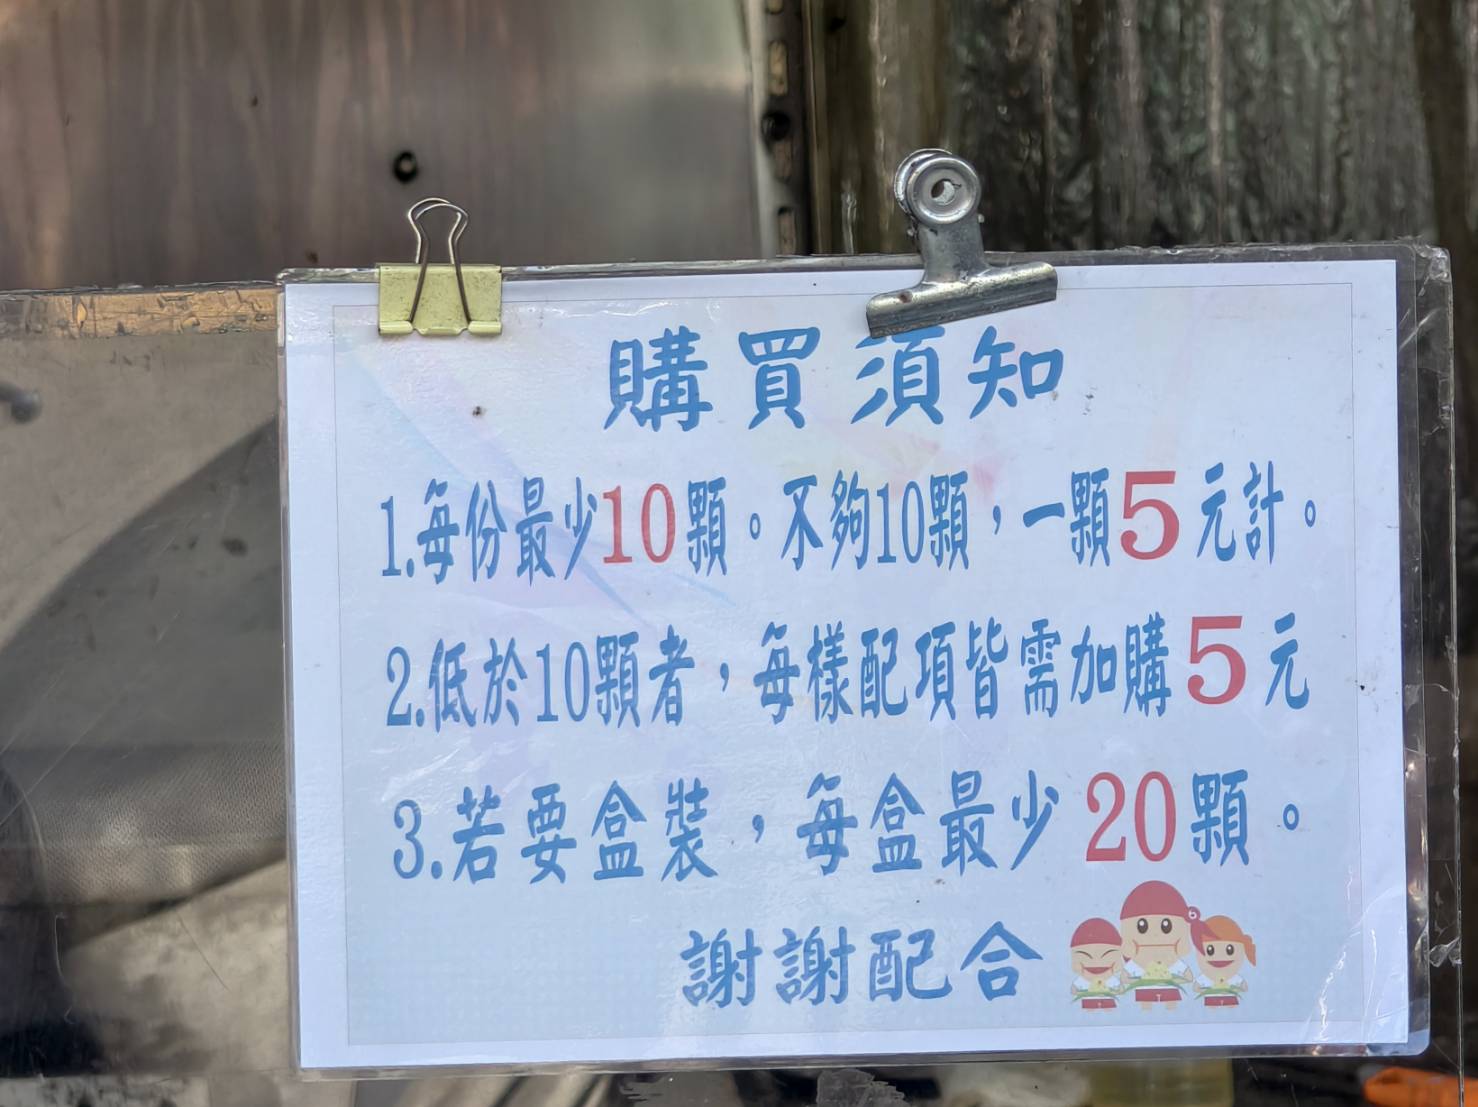 購買須知
1.每份最少10顆。不夠10顆，一顆5元計。
2.低於10顆者，每樣配項皆需加購5元
3.若要盒裝，每盒最少20顆。
謝謝配合